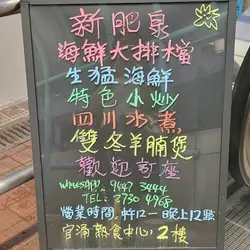 新肥泉
海鮮大排檔
生猛海鮮
特色小炒
四川水煮
雙冬羊腩煲
歡迎訂座
WhatsAPP 9647 3444
TEL: 3730 4968
營業時間: 中午12-晚上12點
官涌熟食中心: 2樓